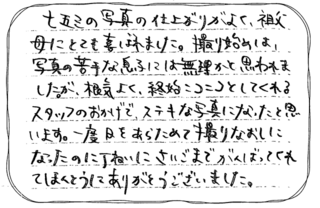 七五三の写真の仕上がりがよく、祖父
母にとても喜ばれました。撮り始めは、
写真の苦手な息子には無理かと思われま
したが、根気よく、終始ニコニコとしてくれる
スタッフのおかげで、ステキな写真になったと思
います。一度日をあらためて撮りなおしに
なったのに丁ねいにさいごまでがんばってくれ
てほんとうにありがとうございました。